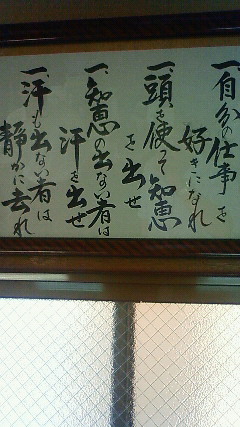 一、自分の仕事を
好きになれ
一、頭を使って知恵
を出せ
一、知恵の出ない者は
汗を出せ
一、汗も出ない者は
静かに去れ